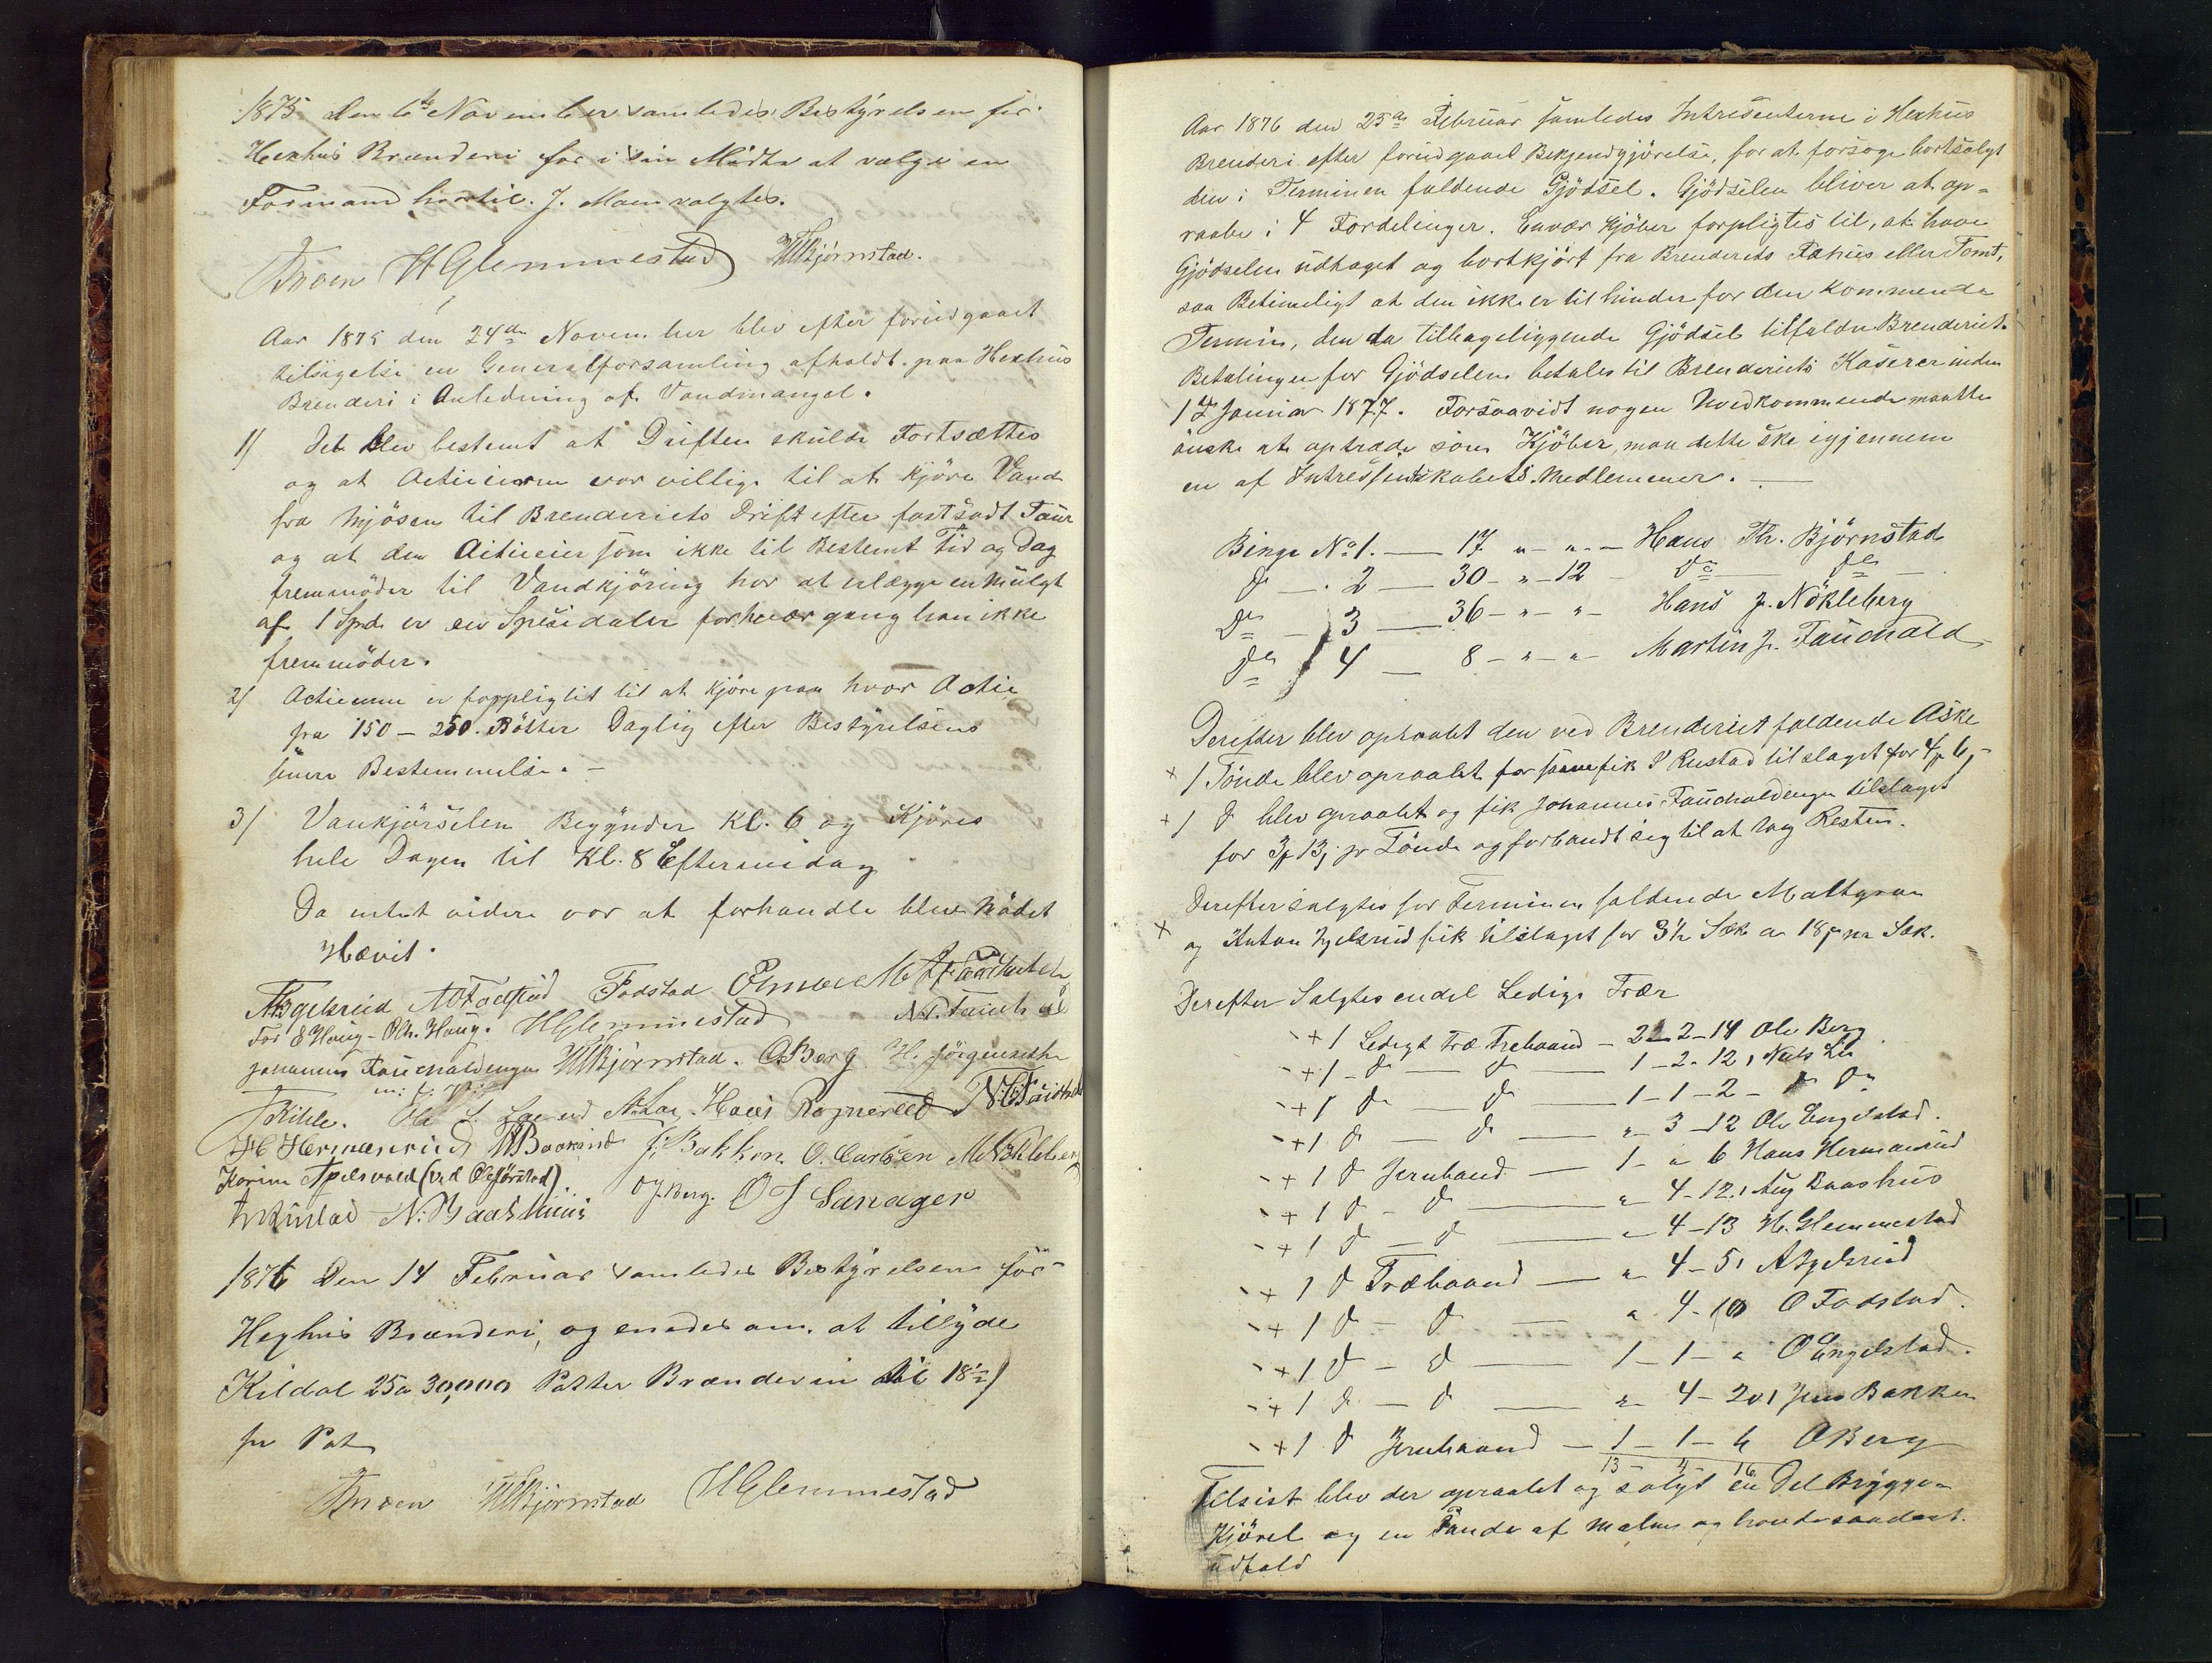 1875 den 6te November samledes Bestyrelsen for
Hexhus Brænderi for i sin Midte at vælge en
Formand hvortil J. Moen valgtes.
JMoen HGlemmestad HTBjørnstad.
Aar 1875 den 24de November blev efter forudgaaet
tilsigelse en Generalforsamling afholdt paa Hexhus
Brænderi i Anledning af Vandmangel.
1/ Det blev bestemt at Driften skulde Fortsættes
og at Actieierne var villige til at kjöre Vand
fra Mjösen til Brenderiets Drift efter fastsadt Tour
og at den Actieeier som ikke til Bestemt Tid og Dag
fremmöder til Vandkjöring har at erlægge en Mulgt
af 1 Spd. er en Spesidaler for hvær gang han ikke
fremmöder.
2/ Actieerne er forpligtet til at kjöre paa hvor Actie
fra 150 – 250 Bötter Daglig efter Bestyrelsens
senere Bestemmelse. –
3/ Vankjörselen Begynder Kl. 6 og Kjöres
hele Dagen til Kl. 8 Eftermidag
Da intet videre var at forhandle blev Mödet
Hævit.
ABgelsrud Fodstad
For E Haug – Olh. Haug. HGlemmestad
Johannes Fauchaldengen HTBjørnstad. OBerg H.
Kihle. Hans Rognerud
H Hermanrud J. Bakken O. Carlsen M Nökleberg
Karine Apelsvold (ved O Gjørstad).
N. Baashuus O J Berg. O J Sanager
1876 Den 14 Februar samledes Bestyrelsen for
Hexhus Brænderi, og enedes om at tillyde
Kildal 25 a 30,000 Potter Brændevin til 18½ /
pr Pot
JMoen HTBjørnstad HGlemmestad
Aar 1876 den 25de Februar samledes Intresenterne i Hexhus
Brenderi efter forudgaaet Bekjendgjörelse, for at forsøge bortsolgt
den i Terminen faldende Gjödsel. Gjödselen bliver at op-
raabe i 4 Fordelinger. Envær Kjöber forpligtes til, at have
Gjödselen udtaget og bortkjört fra Brenderiets Fæhus eller Tomt,
saa Betimeligt at den ikke er til hinder for den kommende
Termin, den da tilbageliggende Gjödsel tilfalder Brenderiet.
Betalingen for Gjödselen betales til Brenderiets Kaserer inden
1ste Januar 1877. Forsaavidt nogen Uvedkommende maatte
önske at optræde som Kjöber, maa dette ske igjennem
en af Intressentskabets Medlemmer. —
Binge No 1. — 17 „ – „ – Hans Th. Björnstad
do — . 2 — 30 – „ – 12 – do do —
do — 3 — 36 – „ – „ – Hans J. Nökleberg
do 4 — 8 – „ – „ – Martin J. Fauchald
Derefter blev opraabt den ved Brenderiet faldende Aske
+ 1 Tönde blev opraabt for samme fik S Rustad tilslaget for 4
+ 1 do blev opraabt og fik Johannes Fauchaldengen tilslaget
for 3 13 pr Tönde og forbandt sig til at tag Resten.
Derefter solgtes for Terminen faldende Maltgroe
+ og Anton Bgelsrud fik tilslaget for 3½ Sæk a 18 pr Sæk.
Derefter Salgtes endel Ledige Trær
+ 1 Ledigt Træ Trebaand – 2 – 2 – 14 Ole Berg
+ 1 – do — do — 1 – 2 – 12 Niels Lie
+ 1 do — do — 1 – 1 – 2 – do do
+ 1 do — do — „ – 3 – 12 Ole Engelstad.
+ 1 do Jernbaand — 1 – „ 6 Hans Hermanrud
+ 1 do – do — „ 4 – 12 Aug Baashus
+ 1 do — do — „ 4 – 13 H. Glemmestad
+ 1 do Træbaand — „ 4 – 5 ABgelsrud
+ 1 do – do — „ 4 – 10 O Fodstad.
+ 1 do – do — 1 – 1 – „ O Engelstad.
+ 1 do — do — „ 4 – 20 Jens Bakken
+ 1 do Jernbaand — 1 – 1 – 4 OBerg
13 – 4 16
Tilsist blev der opraabt og solgt en Del Brygge-
Kjörel og en Pande af Malm og havde saadant
udfald